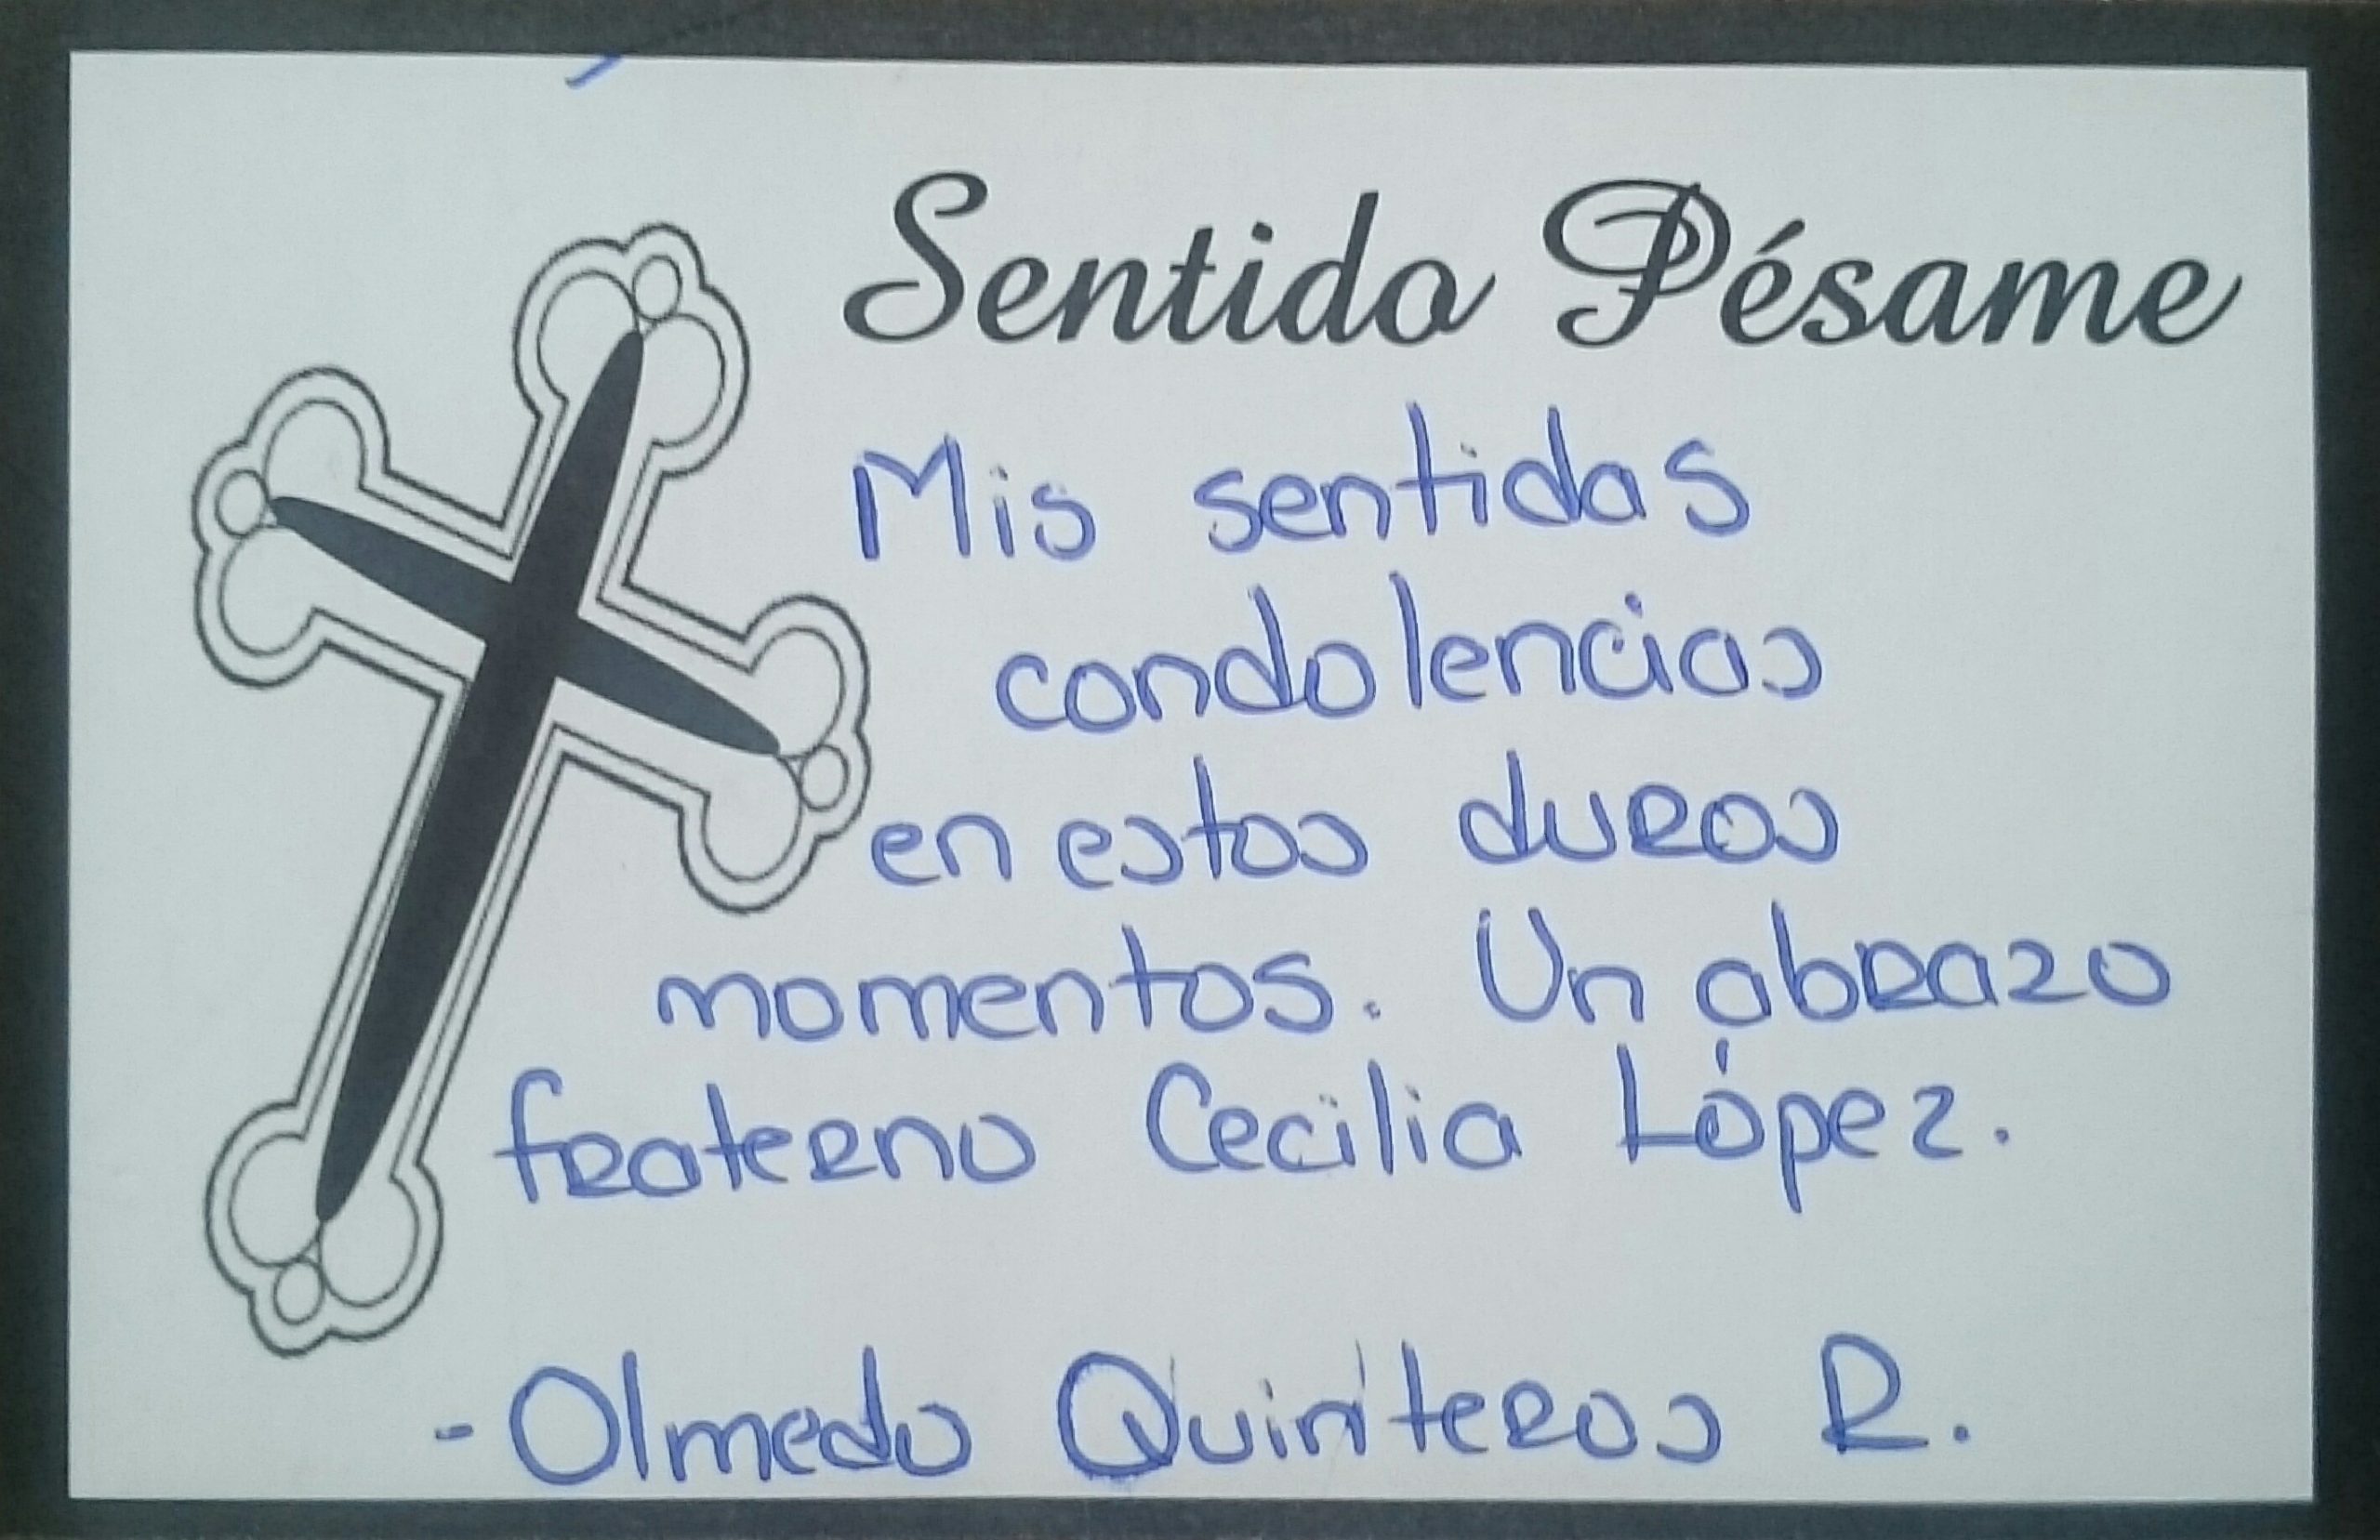 Sentido Pésame
Mis sentidas
condolencias
en estos duros
momentos. Un abrazo
fraterno Cecilia López.
- Olmedo Quinteros R.